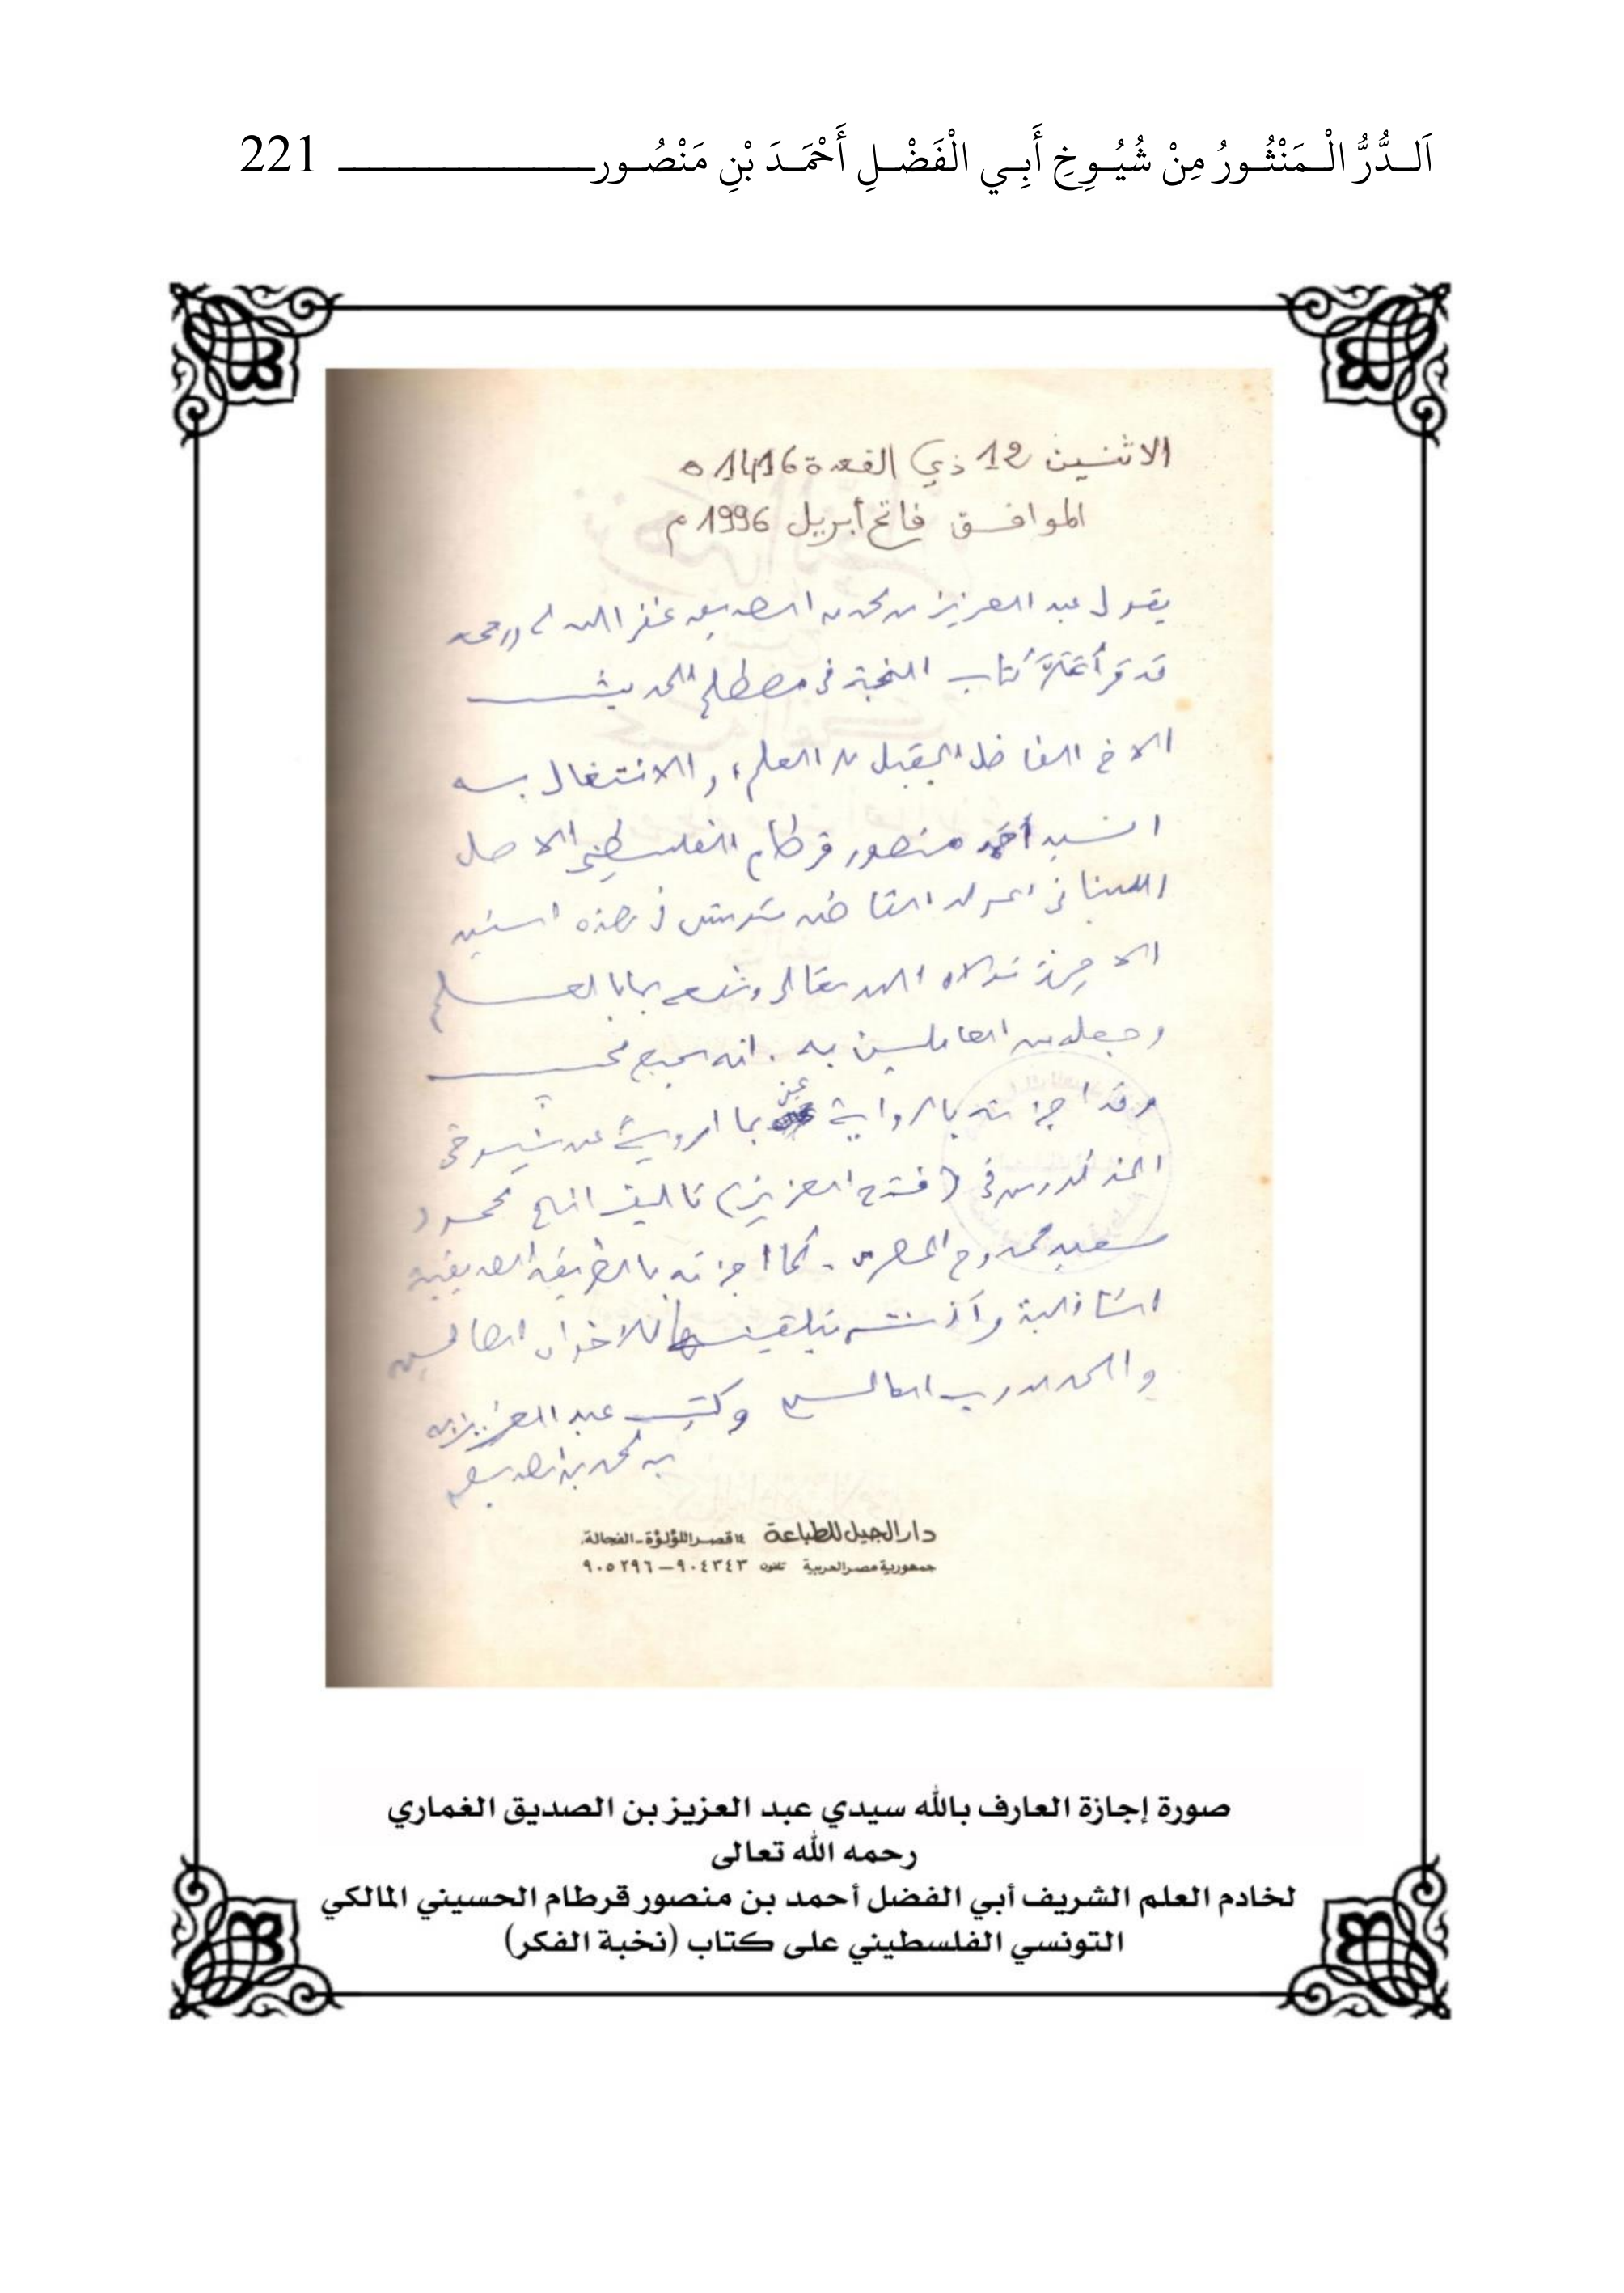 اَلــدُّرُّ الْـمَنْثُـورُ مِنْ شُيُـوخِ أَبِـي الْفَضْـلِ أَحْمَـدَ بْنِ مَنْصُـور 221
الاثنين 12 ذي القعدة 1416 ه
الموافق فاتح أبريل 1996 م
يقول عبد العزيز بن محمد بن الصديق غفر الله له ورحمه
قد قرأ كتاب النخبة في مصطلح الحديث
الاخ الفاضل المقبل العلم، والاشتغال به
السيد أحمد منصور قرطام الفلسطيني الاصل
اللبناني المولد القاطن بتونس في هذه السنين
الاخيرة تولاه الله تعالى ونفعه بالعلم
وجعله من العاملين به. انه سميع مجيب
وقد اجزته بالرواية عني بما ارويه عن شيوخي
المذكورين في (فتح العزيز) تاليف محمود
سعيد ممدوح المصري. كما اجزته بالطريقة الصديقية
الشاذلية وأذنته بتلقينها للاخوان الطالبين
والحمد لله رب العالمين وكتب عبد العزيز
بن محمد بن الصديق
دار الجيل للطباعة ١٤ قصر اللؤلؤة - الفجالة.
جمهورية مصر العربية تلفون ٩٠٤٣٤٣ – ٩٠٥٢٩٦
صورة إجازة العارف بالله سيدي عبد العزيز بن الصديق الغماري
رحمه الله تعالى
لخادم العلم الشريف أبي الفضل أحمد بن منصور قرطام الحسيني المالكي
التونسي الفلسطيني على كتاب (نخبة الفكر)